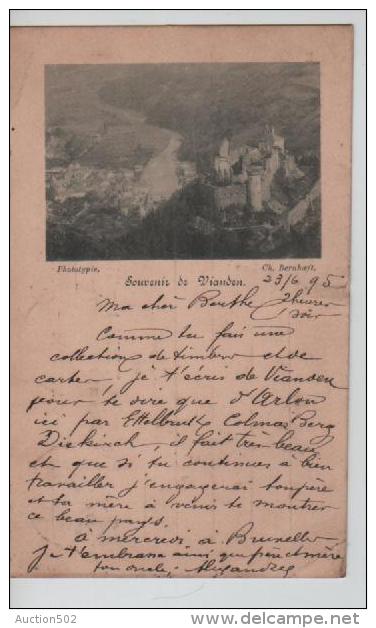 Phototypie. Ch. Bernhoeft.
Souvenir de Vianden.
23/6 95
Ma cher Berthe 2 heures
soir
Comme tu fais une
collection de timbre et de
carter, je t'écris de Vianden
pour te dire que d'Arlon
ici par Ettelbruck Colmar Berg
Diekirch, il fait très beau
et que si tu continues à bien
travailler j'engagerai ton père
et ta mère à venir te montrer
ce beau pays.
à mercredi à Bruxelles
je t'embrasse ainsi que père et mère
ton oncle, Alexandre
©Auction502